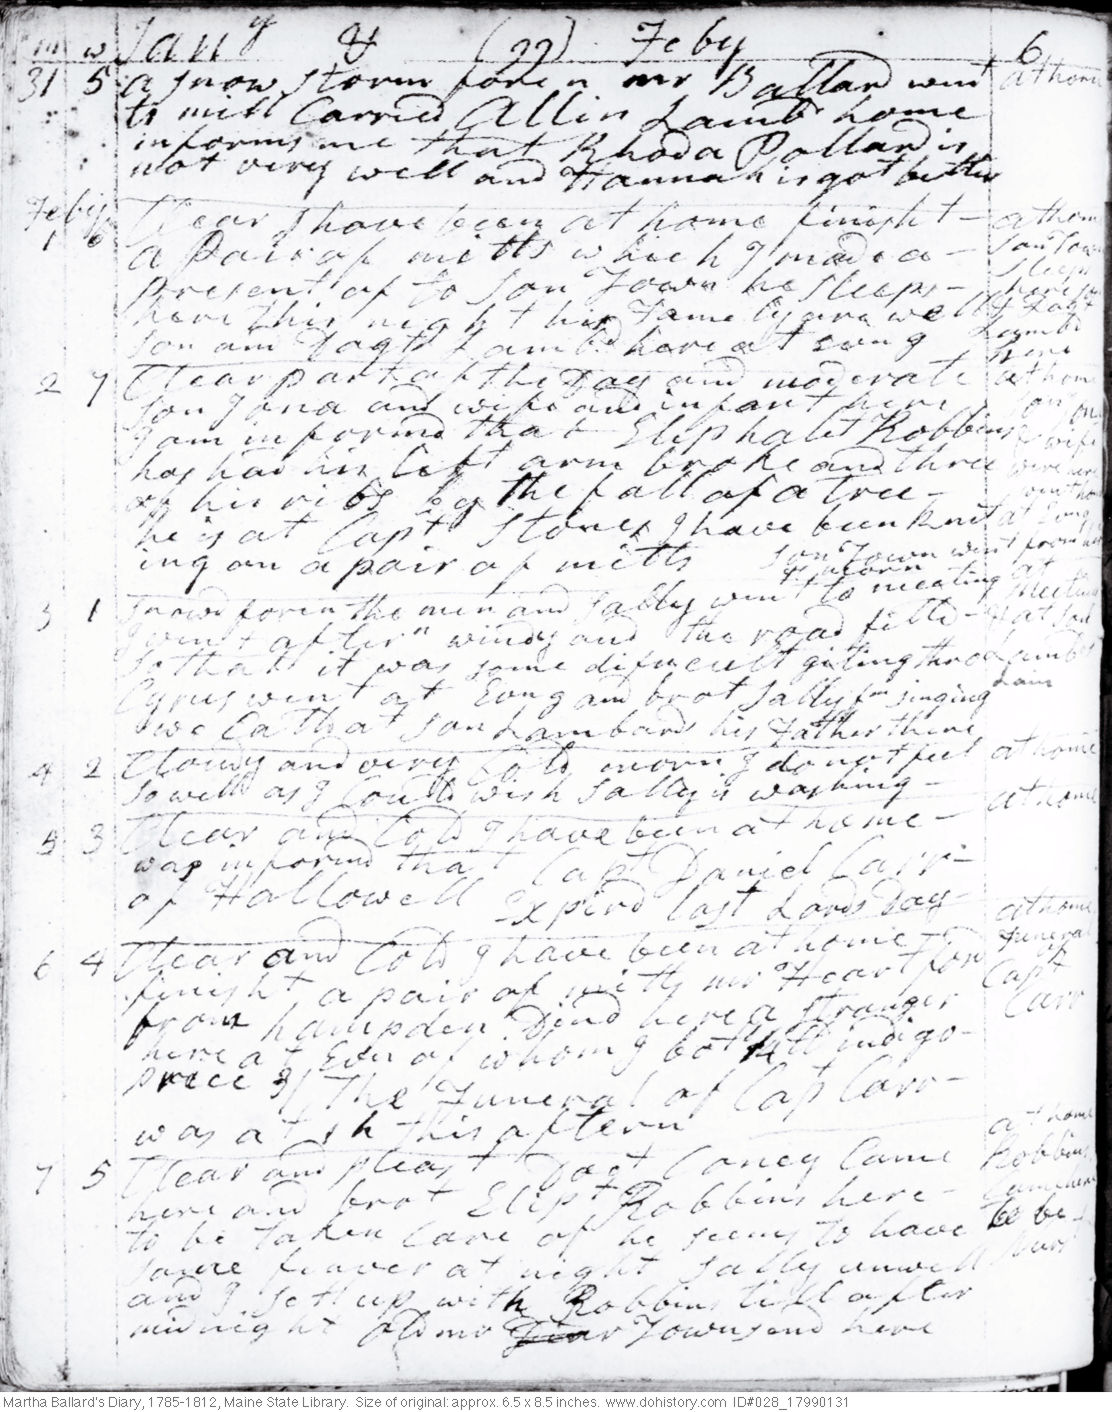 m w Jany & (99) Feby 6
31 5 a snow storm foren mr Ballard went at home
to mill Carried Allin Lambd home
informs me that Rhoda Pollard is
not very well and Hannah is got better
Feby
1 6 Clear I have been at home finisht at home
a Pair of mitts which I made a son Town
present of to son Town he sleeps sleeps
here this night his Famely are well here
son and Dagt Lambd here at evng Lambd here
2 7 Clear part of the Day and moderate at home
son Jona and wife and infant here son Jona
I am informd that Eliphalet Robbins & wife
has had his left arm broke and three were here
of his ribs by the fall of a tree
he is at Capt Stones I have been knit at Evng
ing on a pair of mitts son Town went from here
at morn
3 1 snowd foren the men and Sally went to meeting at meeting
went aftern windy and the road filld & at son
so that it was some difficult giting thro Lambds
Cyrus went at Evng and brot Sally fm singing
we Ca that son Lambards his Father there
4 2 Cloudy and very Cold morn I do not feel at home
so well as I Could wish Sally is washing
5 3 Clear and Cold I have been at home at home
was informd that Capt Daniel Carr
of Hallowell Expird last Lords Day
6 4 Clear and Cold I have been at home at home
finisht a pair of mitts mr Heartford Funeral of
from hampden Dind here a stranger Capt Carr
here at Even of whom I bot indigo
price 3/ The Funeral of Capt Carr
was at 1 h this aftern
7 5 Clear and pleast Doct Coney Came at home
here and brot Elipt Robbins here Robbins
to be taken Care of he seems to have Came here
some feaver at night Sally unwell to be nurst
and I sett up with Robbins till after
midnight old mr Townsend here
Martha Ballard's Diary, 1785-1812, Maine State Library. Size of original: approx. 6.5 x 8.5 inches. www.dohistory.com ID#028_17990131